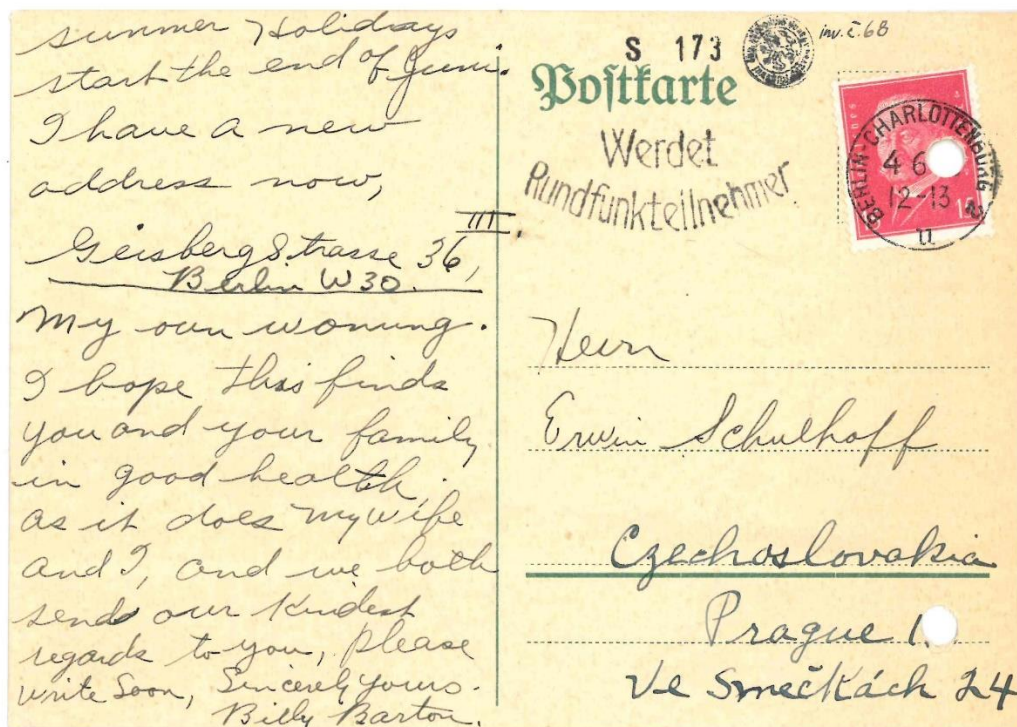 summer Holidays
start the end of Juni.
I have a new
address now,
Geisberg Strasse 36, III.
Berlin W30.
My own wonung.
I hope this finds
you and your family
in good health,
as it does my wife
and I, and we both
sends our Kindest
regards to you, please
write soon, Sincerely yours.
Billy Barton.
S 173
inv. č. 68
Postkarte
Werdet
Rundfunkteilnehmer
BERLIN-CHARLOTTENBURG 2
4 6
12-13
u
Herrn
Erwin Schulhoff
Czechoslovakia
Prague 1.
Ve Smečkách 24